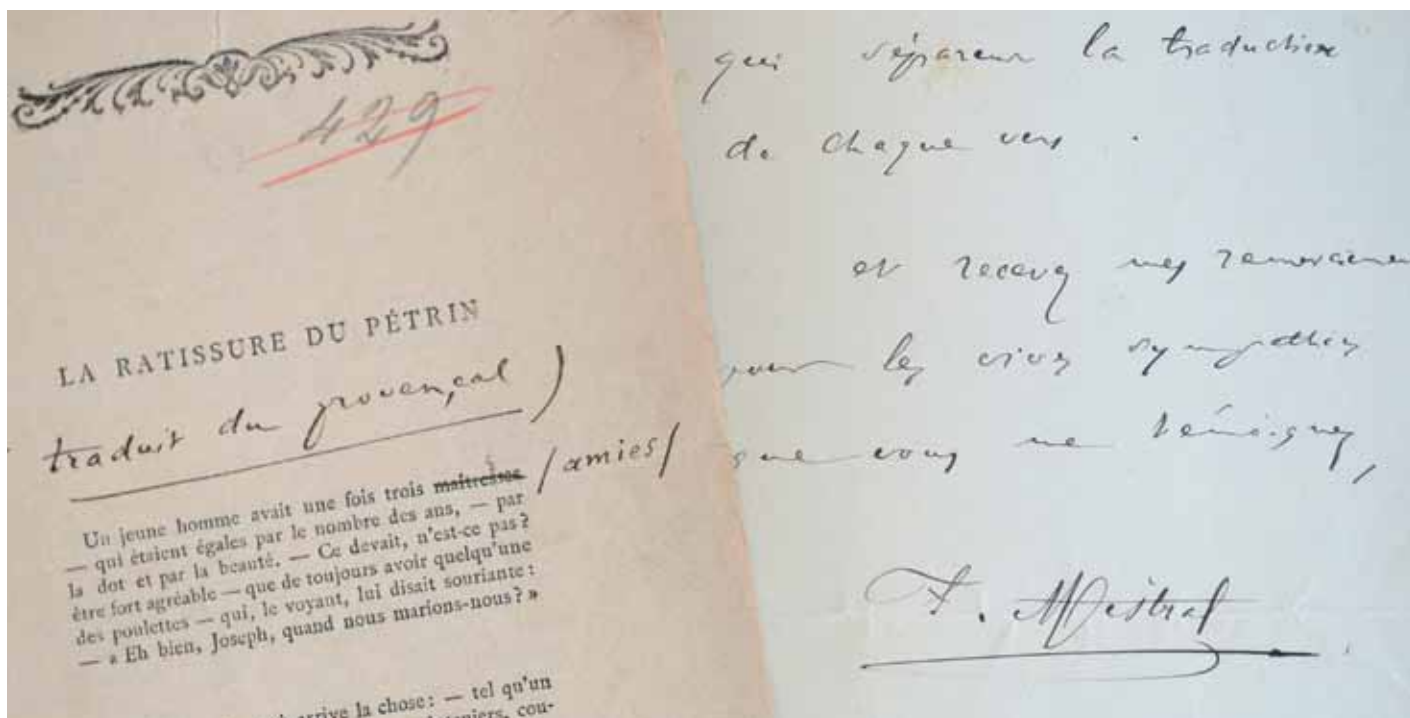 429
LA RATISSURE DU PÉTRIN
traduit du provençal )
Un jeune homme avait une fois trois maitresses /amies/
— qui étaient égales par le nombre des ans, — par
la dot et par la beauté. — Ce devait, n'est-ce pas?
être fort agréable — que de toujours avoir quelqu'une
des poulettes — qui, le voyant, lui disait souriante :
— « Eh bien, Joseph, quand nous marions-nous? »
arrive la chose : — tel qu'un
cou-
qui séparent la traduction
de chaque vers .
et recevez mes remerciemen
pour les vives sympathies
que vous me témoignez,
F. Mistral